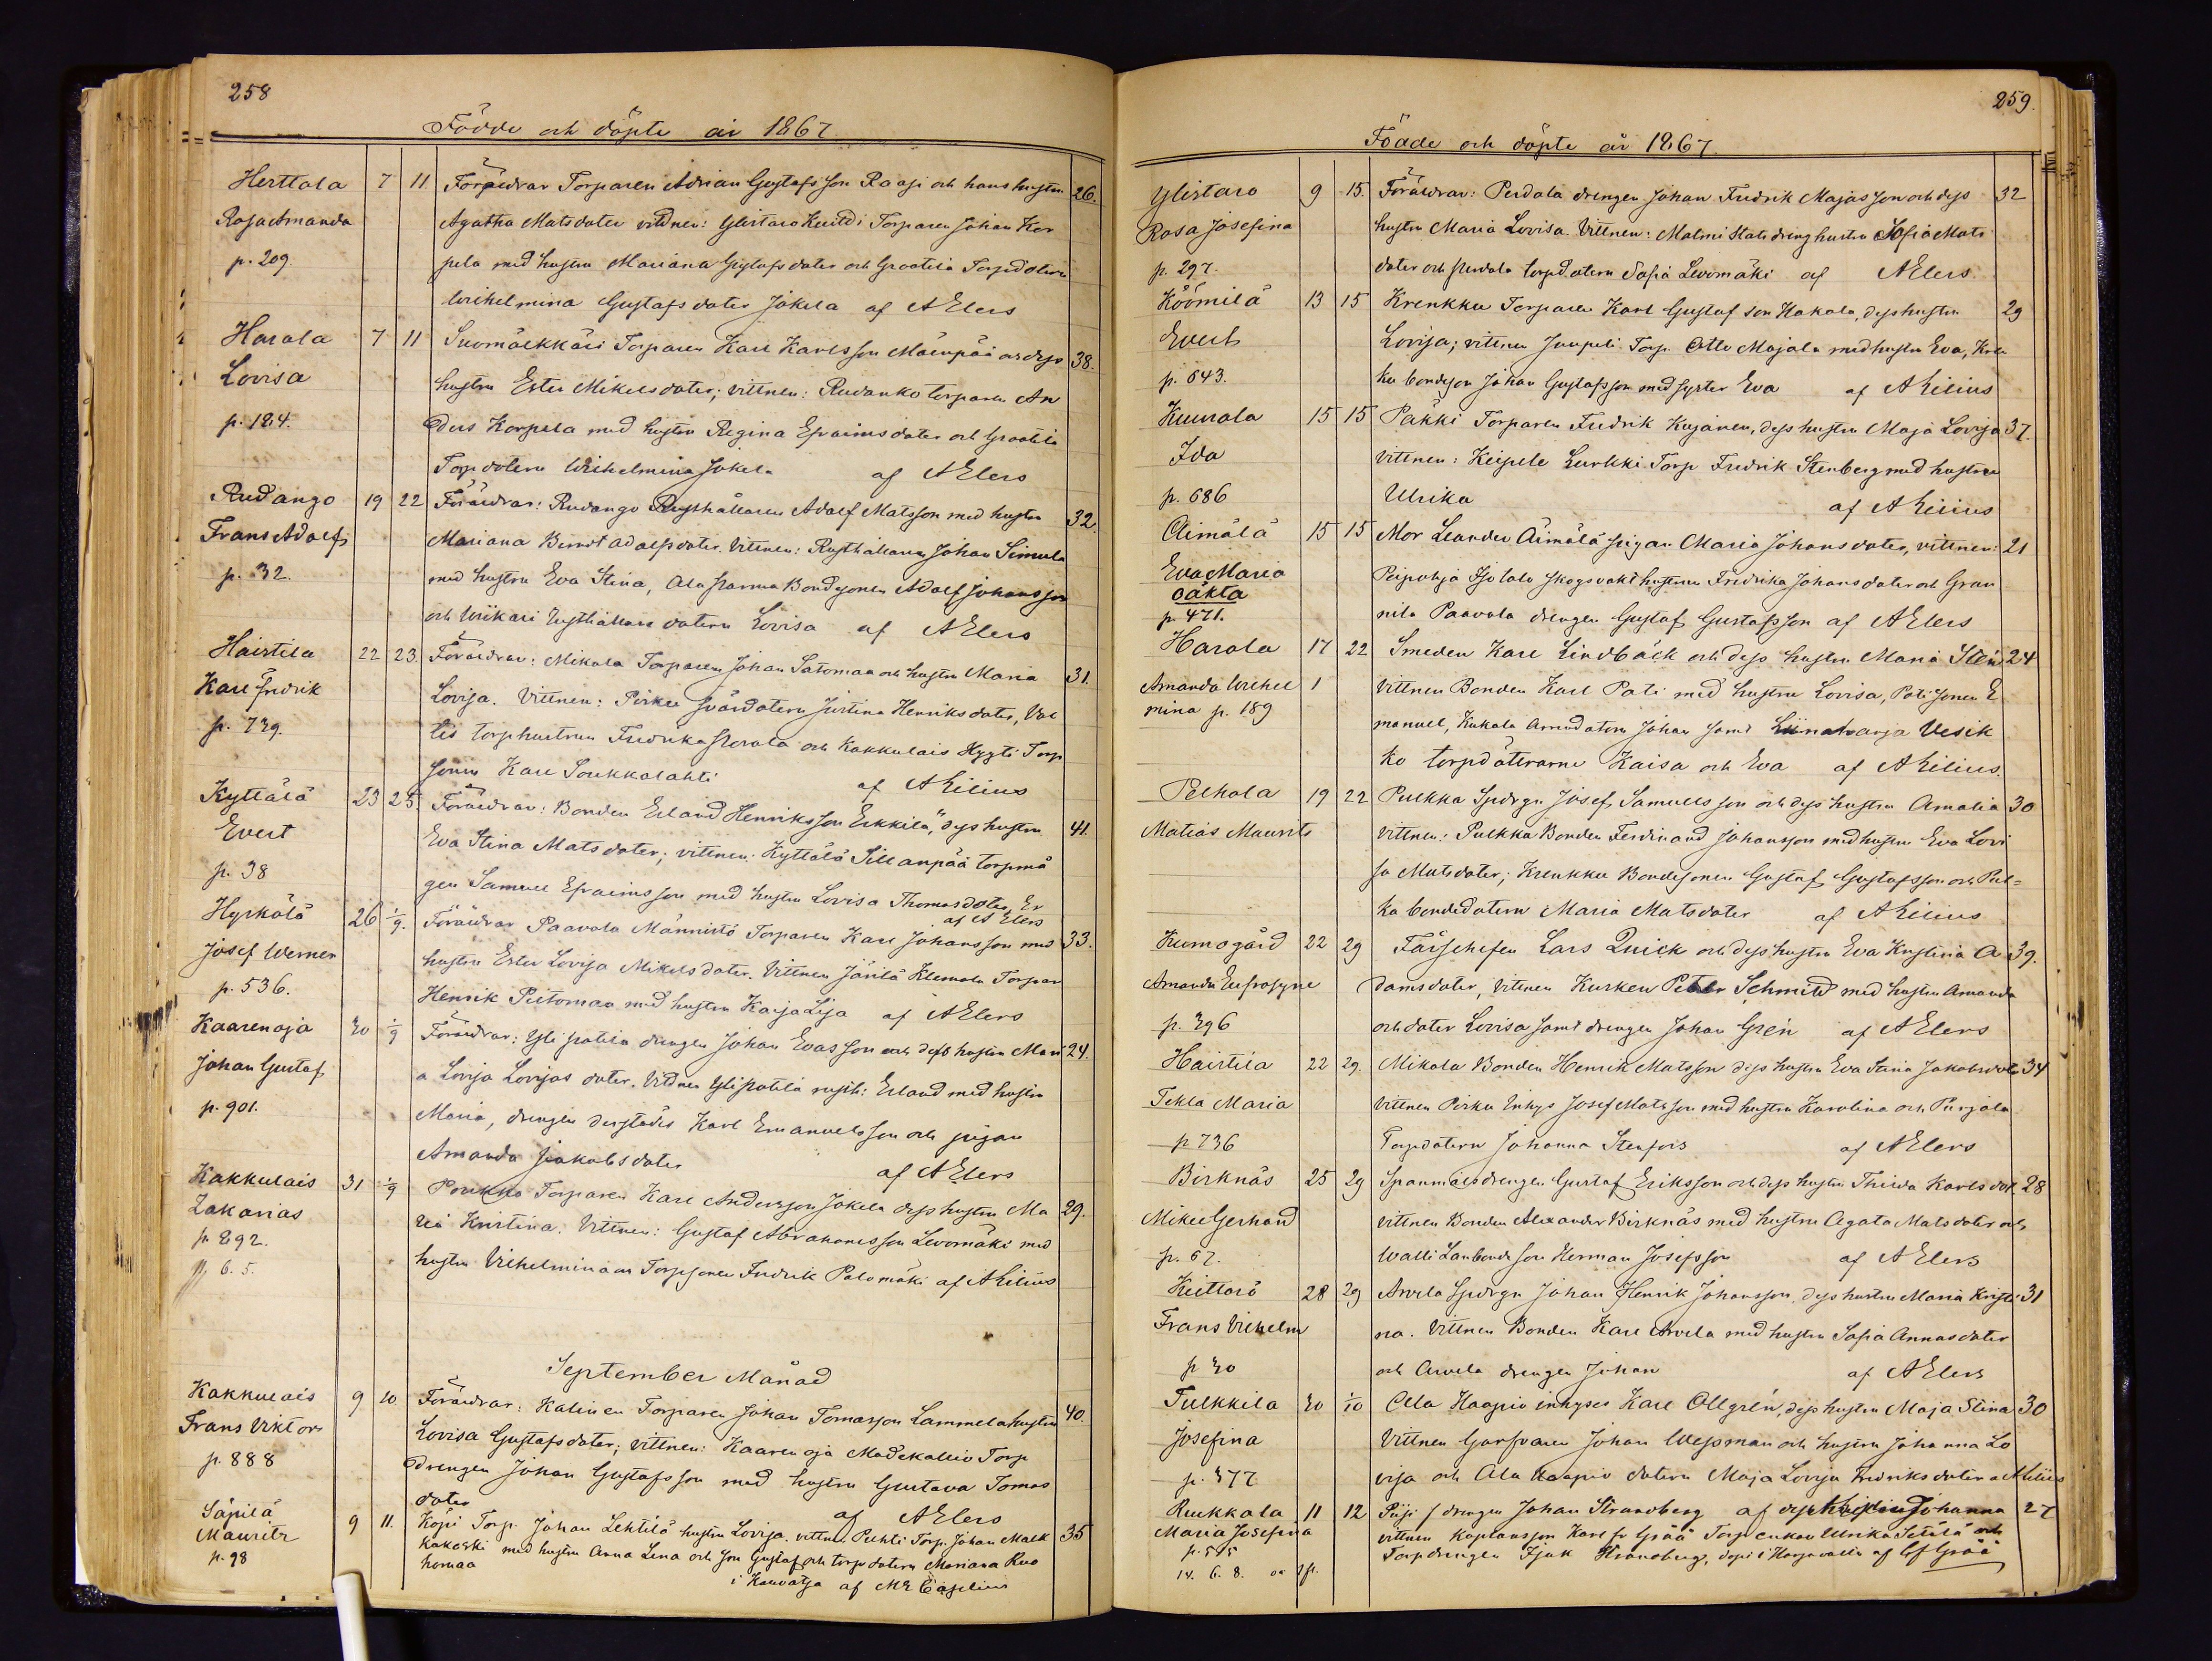 258
Födde och döpte år 1867
Herttala 7 11 Föräldrar Torparen Adrian Gustafsson Raasi och hans hustru 26.
Rosa Amanda Agatha Matsdoter vittnen: Ylistaro Torparen Johan Kor
p. 209. pela med hustru Mariana Gustafsdoter och Grootila Torpdotern
Wilhelmina Gustafsdoter Jokela af A Elers
Harola 7 11 Suomälkkäri Torparen Karl Karlsson Mäenpää dess 38.
Lovisa hustru Ester Mikelsdoter; vittnen: Rudanko torparen An
p. 184. ders Korpela med hustru Regina Efraimsdoter och Grootila
Torpdotern Wilhelmina Jokela af A Elers
Rudango 19 22 Föräldrar: Rudango Rusthållaren Adolf Matsson med hustru 32.
Frans Adolf Mariana Berndt Adolfsdoter. Vittnen: Rusthållaren Johan Simula
p. 32. med hustru Eva Stina, Bondsonen Adolf Johansson
och Wiikari Rusthållare dotern Lovisa af A Elers
Hairtila 22 23. Föräldrar: Mikola Torparen Johan Satomaa och hustru Maria 31.
Karl Fredrik Lovisa. Vittnen: Pirken dotern Justina Henriksdoter, Val
p. 739. tis torphustrun Fredrika och Kakkulais Torp
sonen Karl Soukkalahti af A Lilius
Kyttälä 23 25 Föräldrar: Bonden Erland Henriksson Erkkilä, dess hustru 41.
Evert Eva Stina Matsdoter; vittnen: Kyttälä Sillanpää torpmå
p. 38 gen Samuel Efraimsson med hustru Lovisa Thomasdoter
af A Elers
Hyrkölä 26 1/9. Föräldrar Paavola Männistö Torparen Karl Johansson med 33.
Josef Werner hustru Ester Lovisa Mikelsdoter. Vittnen Järilä Klemola Torpar
p. 536. Henrik Peltomaa med hustru Kaisa Lisa af A Elers
Kaarenoja 30 1/9 Föräldrar: Ylipotila drengen Johan Evasson och dess hustru Mari 24.
Johan Gustaf a Lovisa Lovisas doter. Vittnen Ylipotila rusth: Erland med hustru
p. 901. Maria, drengen derstädes Karl Emanuelsson och pigan
Amanda Jakobsdoter af A Elers
Kakkulais 31 1/9 Poukko Torparen Karl Andersson Jokela dess hustru Ma 29.
Zakarias ria Kristina. Vittnen: Gustaf Abrahamsson Levomäki med
p 892. hustru Vilhelmina och Torpsonen Fredrik Palomäki af A Lilius
6. 5.
September Månad
Kakkulais 9 10 Föräldrar: Katinen Torparen Johan Tomasson Lammela hustru 40.
Frans Viktor Lovisa Gustafsdoter; vittnen: Kaarenoja Madekallio Torp
p. 888 drengen Johan Gustafsson med hustru Gustava Tomas
doter af A Elers
Säpilä 9 11. Torp. Johan Lehtilä hustru Lovisa. vittnen Torp. Johan Malk 35
Mauritz kakoski med hustru Anna Lena och son Gustaf och torpdotern Mariana Kuo
p. 98 homaa
i Kauvatsa af
259.
Födde och döpte år 1867.
Ylistaro 9 15 Föräldrar: Perdola drengen Johan Fredrik Majasson och dess 32
Rosa Josefina hustru Maria Lovisa. Vittnen: Malmi Statsdreng hustru Sofia Mats
p. 297. doter och torpdotern Sofia Levomäki af A Elers
Köömilä 13 15 Krenkku Torparen Karl Gustafson Hakala, dess hustru 29
Evert Lovisa; vittnen Juupeli Torp. Otto Majala med hustru Eva, Kren
p. 643. ku bondeson Johan Gustafsson med syster Eva af A Lilius
Kuurola 15 15 Päkki Torparen Fredrik Kujanen, dess hustru Maja Lovisa 37.
Ida vittnen: Keipele Lurkki Torp Fredrik Stenberg med hustru
p. 686 Ulrika af A Lilius
Äimälä 15 15 Mor Leander Äimälä pigan Maria Johansdoter, vittnen: 21
Eva Maria Peipohja Isotalo Skogsvakt hustrun Fredrika Johansdoter och Gran
oäkta
p. 471. nila Paavola drengen Gustaf Gustafsson af A Elers
Harola 17 22 Smeden Karl Lindbäck och dess hustru Maria Stén 24
Amanda Wilhel 1 vittnen Bonden Karl Pati med hustru Lovisa, Pati sonen E
mina p. 189 manuel, Kukola dotern Johan samt Liinaharja Vesik
ko torpdöttrarne Kaisa och Eva af A Lilius.
Pelhola 19 22 Pulkka Spdrgn Josef Samuelsson och dess hustru Amalia 30
Matias Maurits vittnen: Pulkka Bonden Ferdinand Johansson med hustru Eva Lovi
sa Matsdoter; Krenkku Bondesonen Gustaf Gustafsson och Pul=
ka bondedotern Maria Matsdoter af A Lilius
Kumogård 22 29 Lars Quick och dess hustru Eva Kristina A 39.
Amanda Eufrosyne damsdoter, vittnen Kusken Peter Schmitd med hustru Amanda
p. 396 och doter Lovisa samt drengen Johan Gren af A Elers
Hairtila 22 29. Mikola Bonden Henrik Matsson dess hustru Eva Stina Jakobsdot 34
Tekla Maria vittnen Pirku Inhys Josef Matsson med hustru Karolina och Pursjala
p 736 Torpdotern Johanna Stenfors af A Elers
Birknäs 25 29 Spannmålsdrengen Gustaf Eriksson och dess hustru Thilda Karlsdot 28
Mikel Gerhard vittnen Bonden Alexander Birknäs med hustru Agata Matsdoter och
p. 67. Walli Lanbonde son Herman Josefsson af A Elers
Kiettarö 28 29 Arvela Spdrgn Johan Henrik Johansson, dess hustru Maria Kristi 31
Frans Vilhelm na. Vittnen Bonden Karl Arvela med hustru Sofia Annasdoter
p 30 och Arvela drengen Johan af A Elers
Tulkkila 30 1/10 Ala Haapio inhyses Karl Ollgrén, dess hustru Maja Stina 30
Josefina Vittnen Garfvaren Johan Wessman och hustru Johanna Lo
p. 377 visa och Ala Haapio dotern Maja Lovisa Fredriksdoter A Lilius
Ruukkala 11 12 drengen Johan Strandberg af dess Johanna 27
Maria Josefina vittnen Kaplansson Karl Grää Torp enkan Ulrika Setälä och
p. 515 Torpdrengen Isak Strandberg, döpt i Harjavalla af Grää
14. 6. 8.